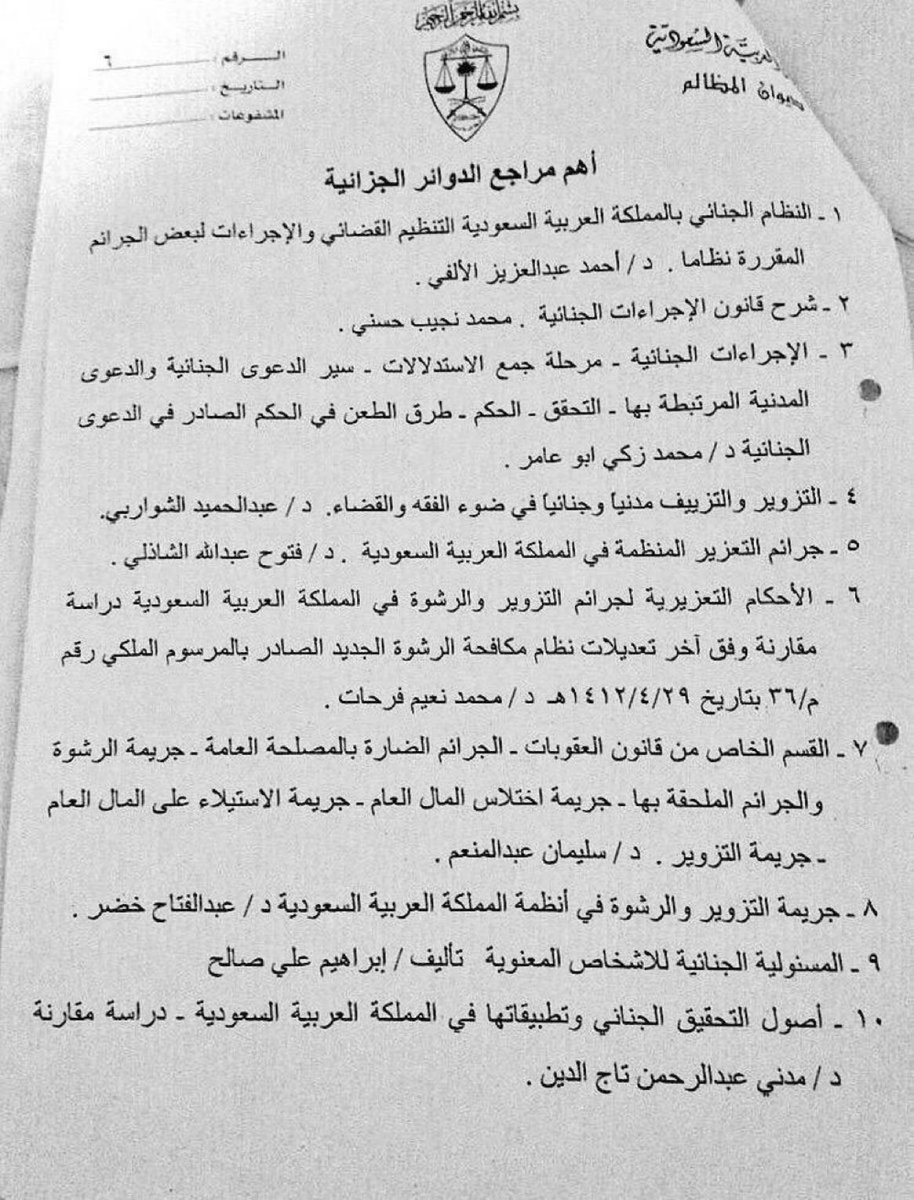 بسم الله الرحمن الرحيم
العربية السعودية
ديوان المظالم
الـرقـم : ٦
التـاريـخ :
المشفوعات :
أهم مراجع الدوائر الجزائية
١ ـ النظام الجنائي بالمملكة العربية السعودية التنظيم القضائي والإجراءات لبعض الجرائم
المقررة نظاما . د / أحمد عبدالعزيز الألفي .
٢ ـ شرح قانون الإجراءات الجنائية . محمد نجيب حسني .
٣ ـ الإجراءات الجنائية ـ مرحلة جمع الاستدلالات ـ سير الدعوى الجنائية والدعوى
المدنية المرتبطة بها ـ التحقق ـ الحكم ـ طرق الطعن في الحكم الصادر في الدعوى
الجنائية د / محمد زكي ابو عامر .
٤ ـ التزوير والتزييف مدنيا وجنائيا في ضوء الفقه والقضاء. د / عبدالحميد الشواربي.
٥ ـ جرائم التعزير المنظمة في المملكة العربية السعودية . د / فتوح عبدالله الشاذلي .
٦ ـ الأحكام التعزيرية لجرائم التزوير والرشوة في المملكة العربية السعودية دراسة
مقارنة وفق آخر تعديلات نظام مكافحة الرشوة الجديد الصادر بالمرسوم الملكي رقم
م/٣٦ بتاريخ ١٤١٢/٤/٢٩هـ د / محمد نعيم فرحات .
٧ ـ القسم الخاص من قانون العقوبات ـ الجرائم الضارة بالمصلحة العامة ـ جريمة الرشوة
والجرائم الملحقة بها ـ جريمة اختلاس المال العام ـ جريمة الاستيلاء على المال العام
ـ جريمة التزوير . د / سليمان عبدالمنعم .
٨ ـ جريمة التزوير والرشوة في أنظمة المملكة العربية السعودية د / عبدالفتاح خضر .
٩ ـ المسئولية الجنائية للاشخاص المعنوية تأليف / إبراهيم علي صالح
١٠ ـ أصول التحقيق الجنائي وتطبيقاتها في المملكة العربية السعودية ـ دراسة مقارنة
د / مدني عبدالرحمن تاج الدين .